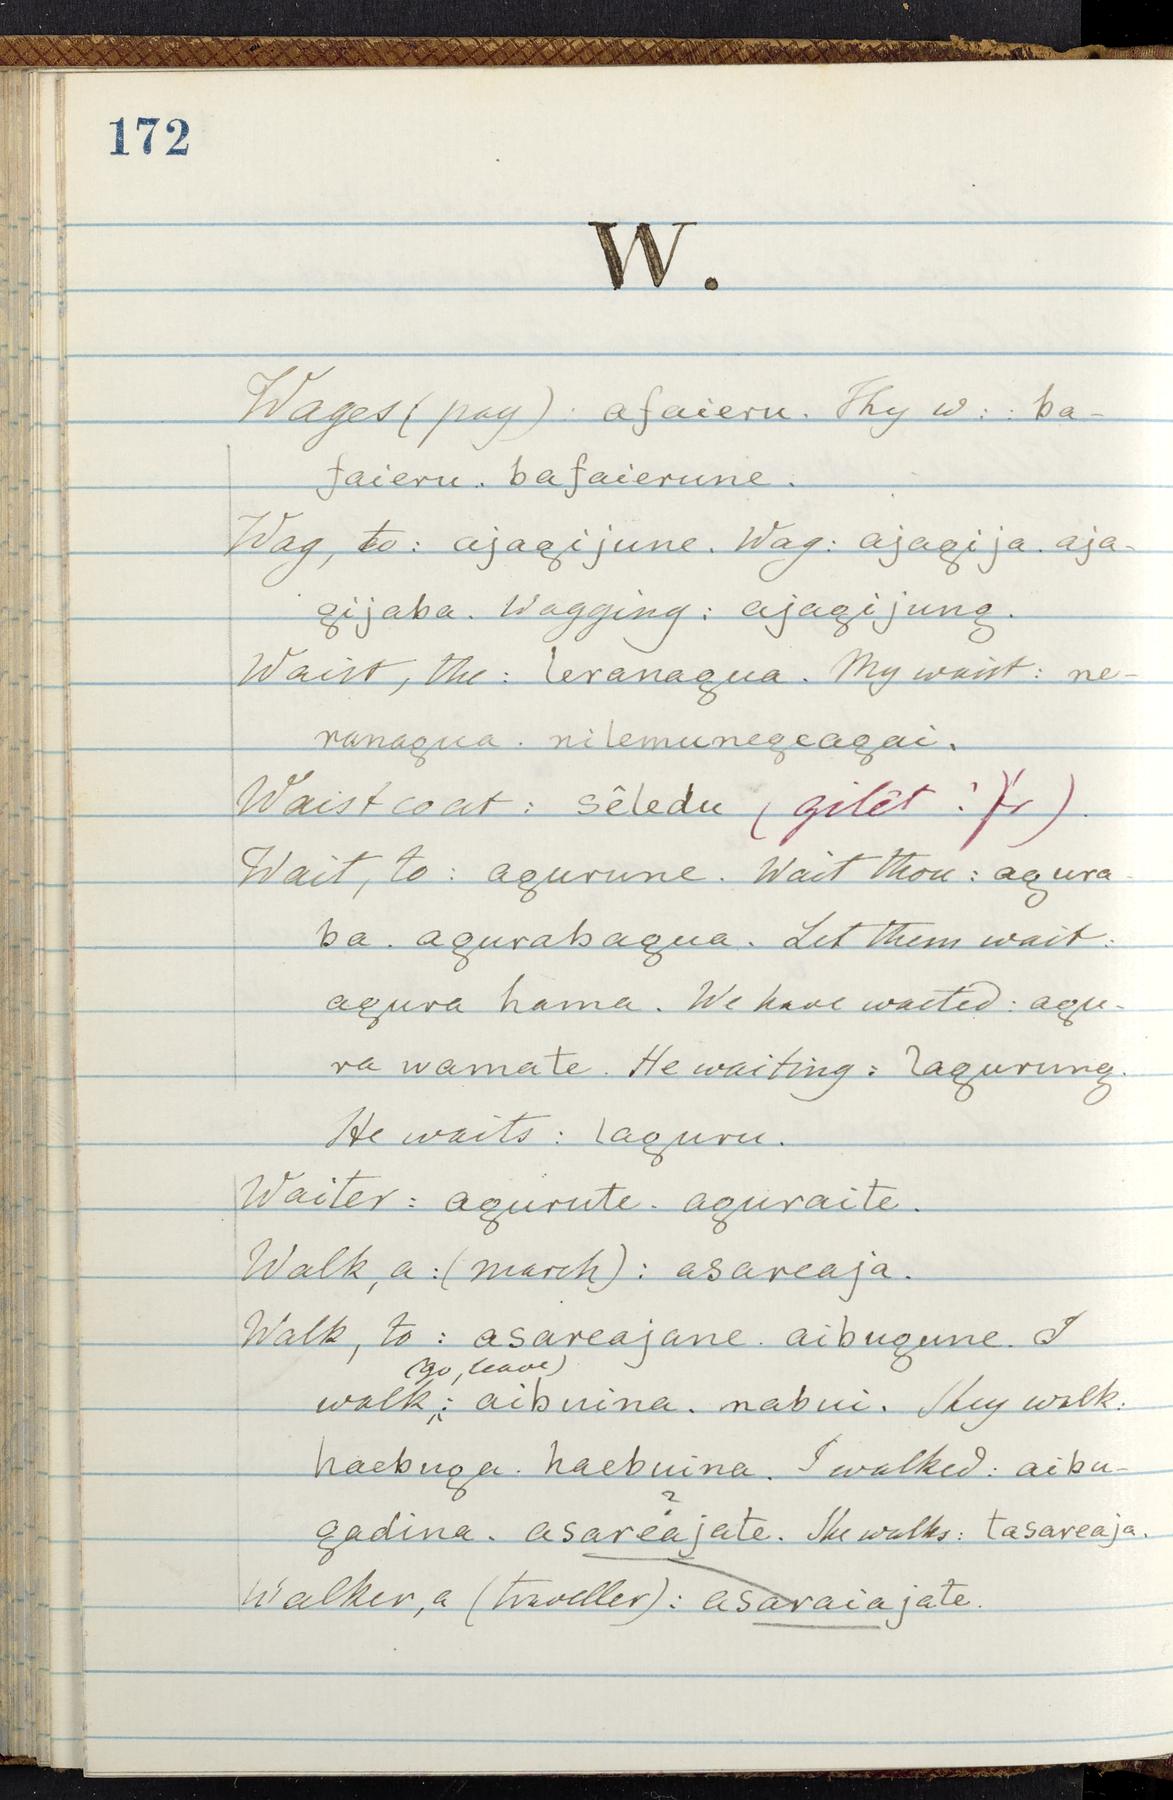 172
W.
Wages (pay): afaieru. Thy w: : ba-
faieru. bafaierune.
Wag, to: ajagijune. Wag: ajagija. aja-
gijaba. Wagging: ajagijung.
Waist, the: leranagua. My waist: ne-
ranagua. nilemunegeagai.
Waistcoat: sêledu (gilêt: Fr)
Wait, to: agurune. Wait thou: agura-
ba. agurabagua. Let them wait:
agura hama. We have waited: agu-
ra wamate. He waiting: lagurung.
He waits: laguru.
Waiter: agurute. aguraite.
Walk, a: (march): asareaja.
Walk, to: asareajane. aibugune. I
(go, leave)
walk: aibuina. nabui. They walk:
haebuga. haebuina. I walked: aibu-
gadina. asareajate. She walks: tasareaja.
?
Walker, a (traveller): asaraiajate.